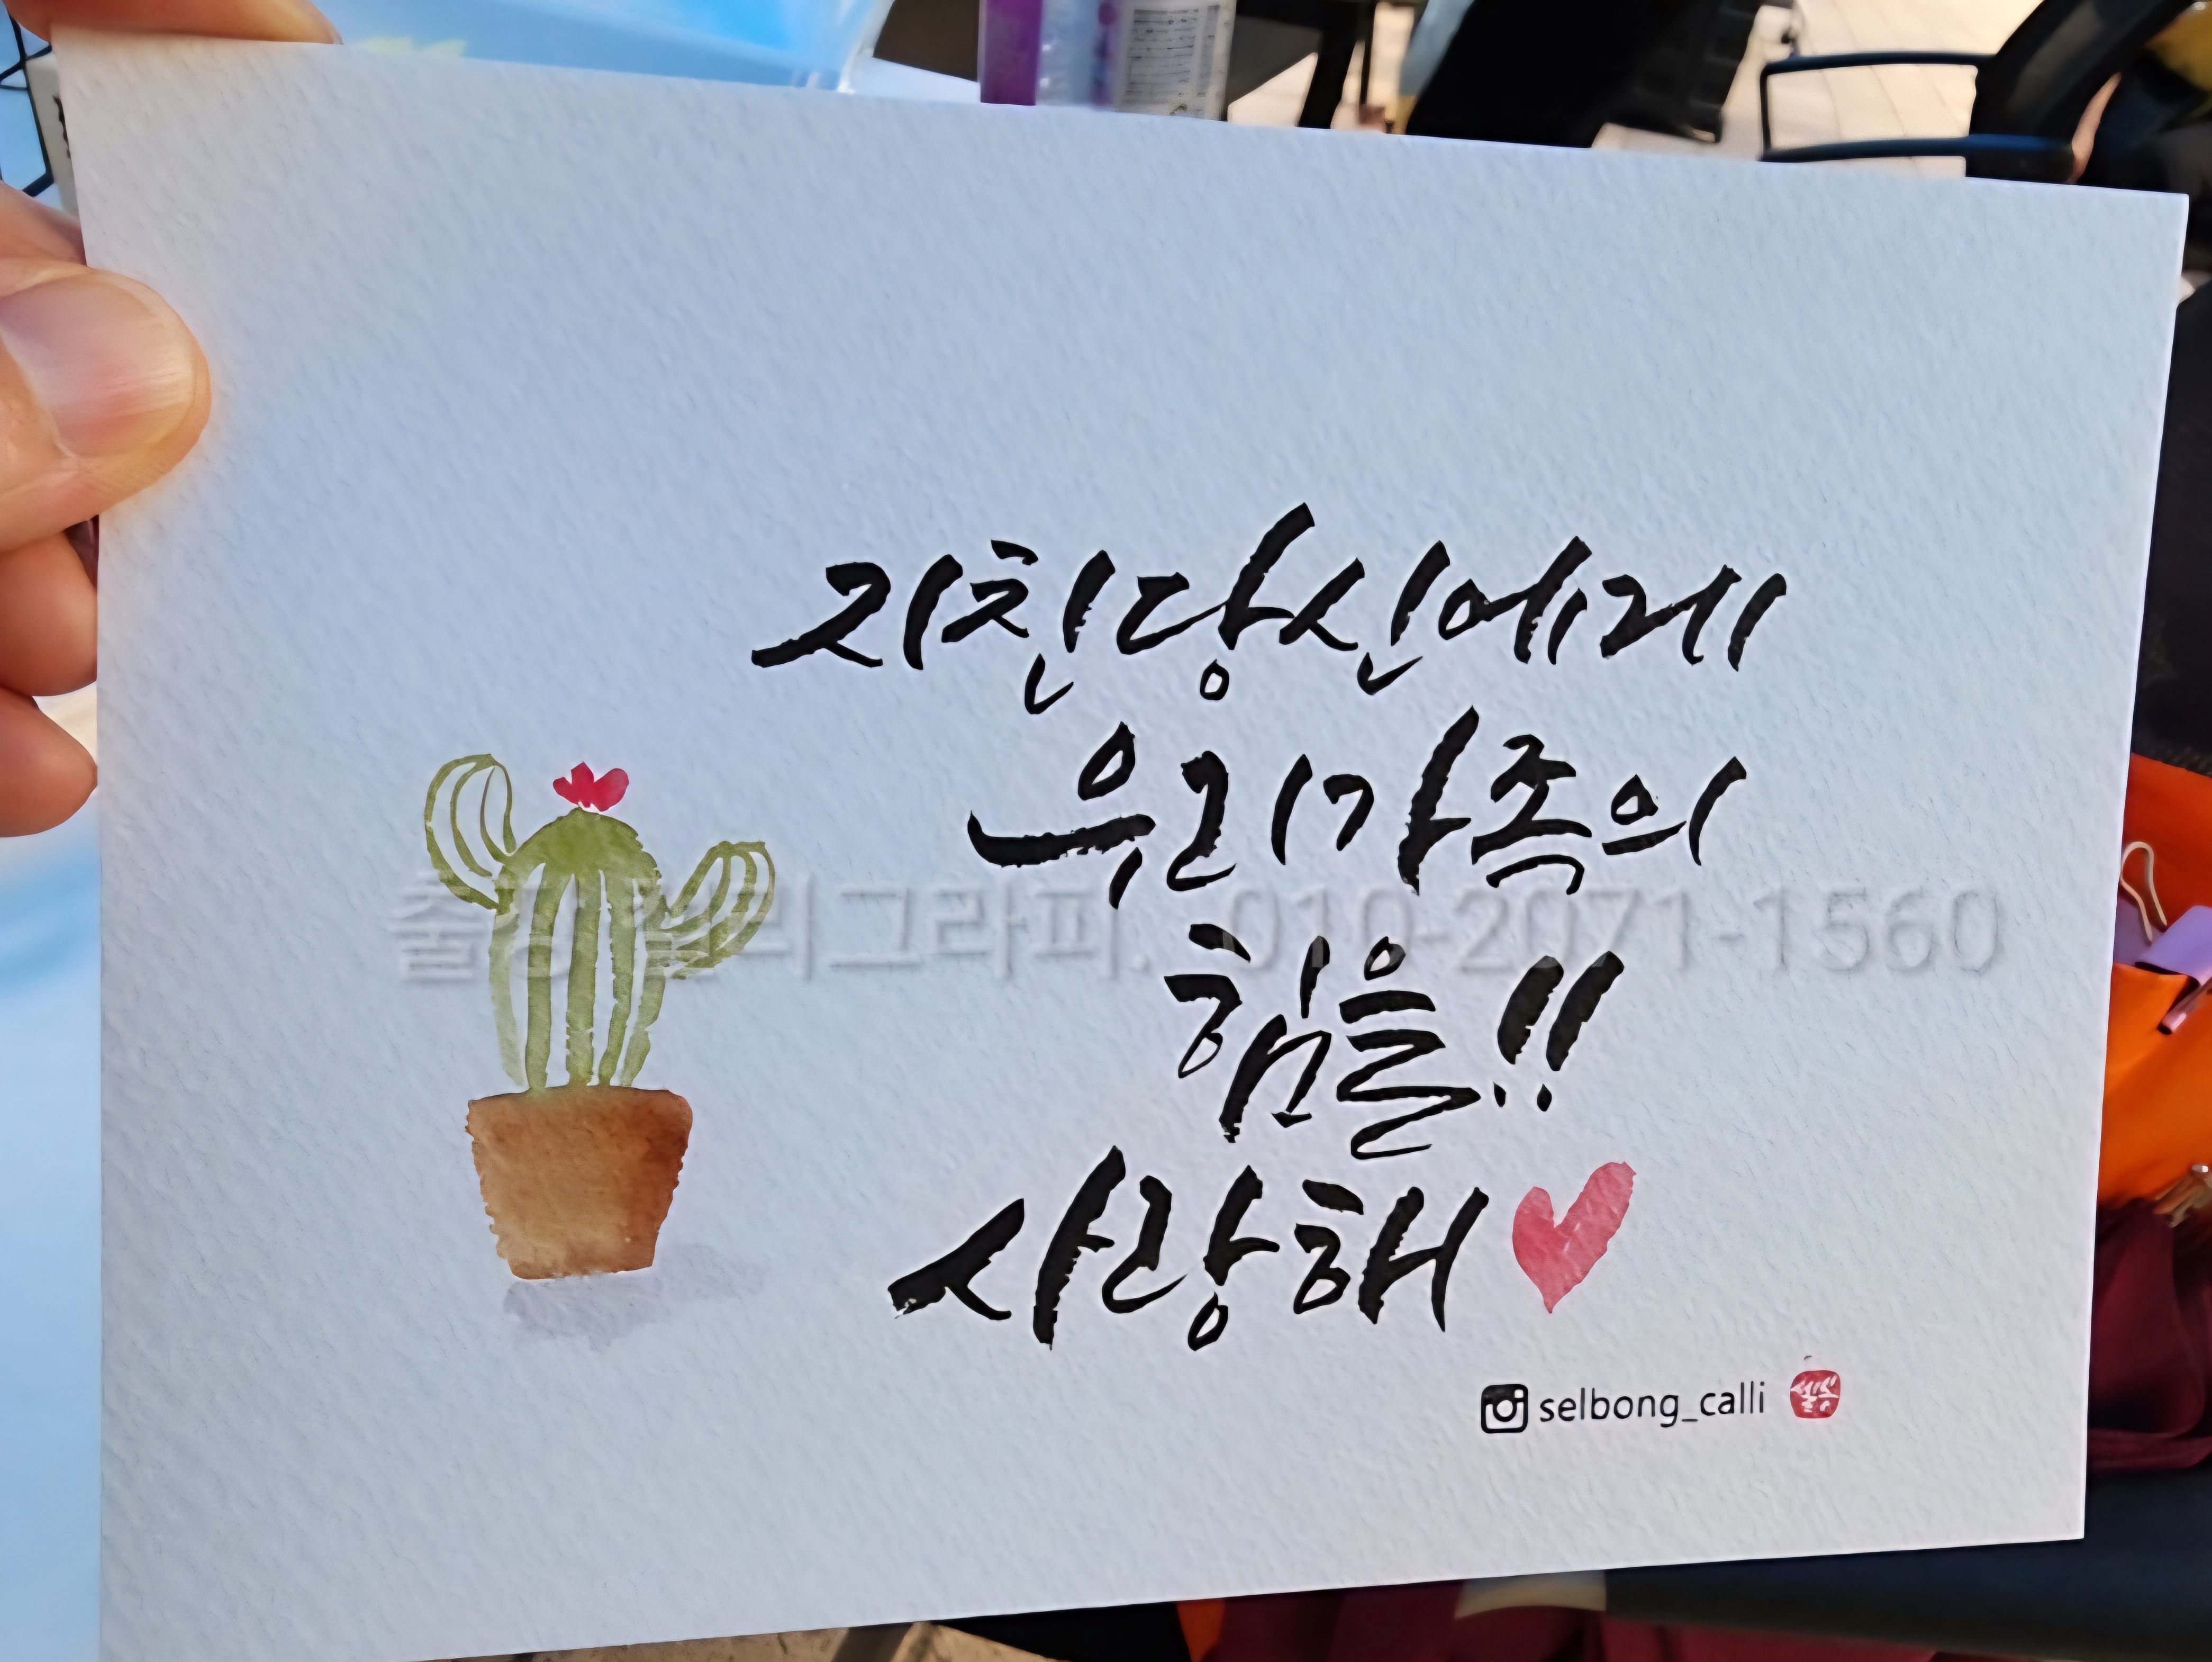 지친당신에게
우리가족의
힘을!!
사랑해
출강 캘리그라피. 010-2071-1560
selbong_calli